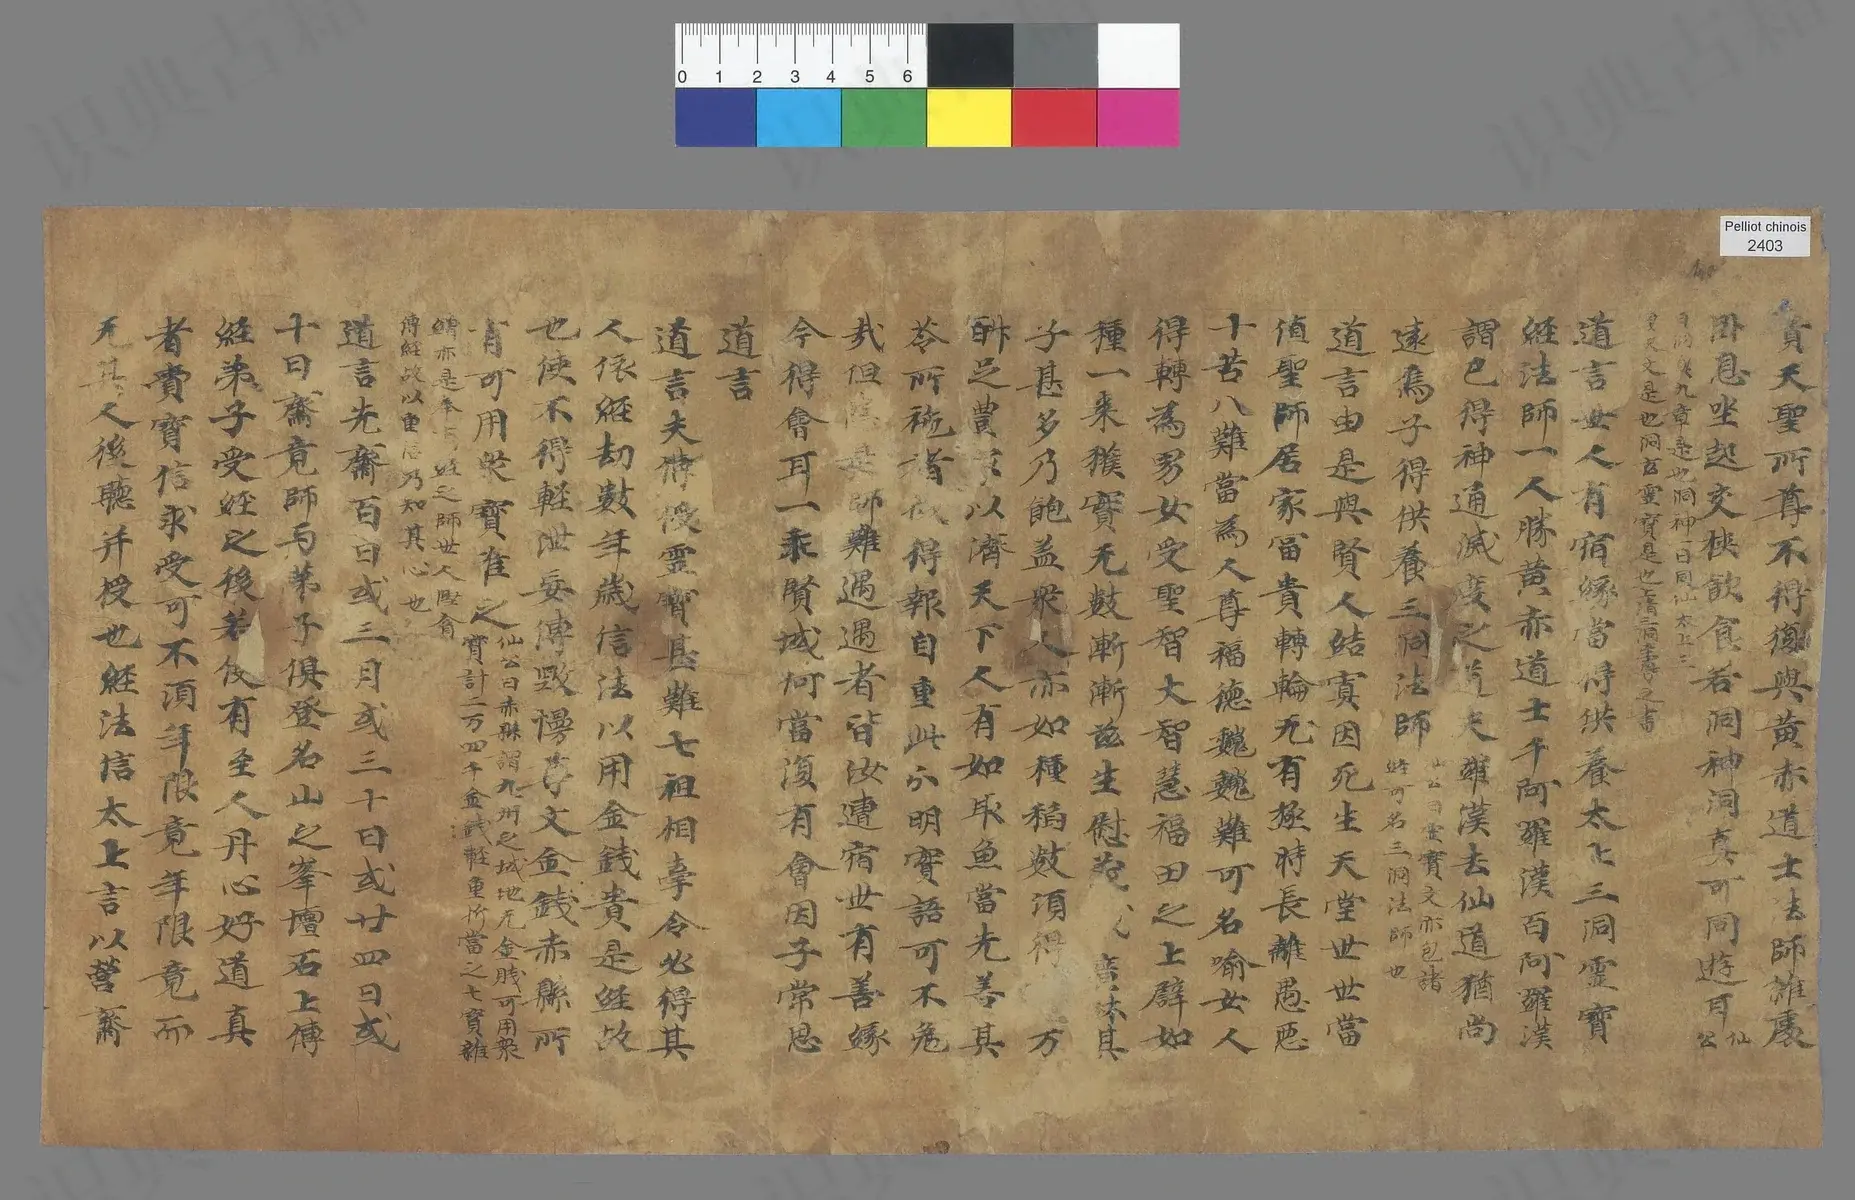 Pelliot chinois
2403
0 1 2 3 4 5 6
貴天聖所尊不得復與黄赤道士法師雜處
卧息坐起交校飲食若洞神洞真可同遊耳仙公
曰洞真九章是也洞神一曰同仙太上三
皇天文是也洞玄靈寶是也上清三洞之書
道言世人有宿緣當得供養太上三洞靈寶
經法師一人勝黄赤道士千阿羅漢百阿羅漢
謂已得神通滅度之道夫羅漢去仙道猶尚
遠焉子得供養三洞法師仙公曰靈寶文亦包諸
經可名三洞法師也
道言由是與賢人結實因死生天堂世世當
值聖師居家富貴轉輪无有極時長離愚惡
十苦八難當為人尊福德巍巍難可名喻女人
得轉為男女受聖智大智慧福田之上辟如
種一來獲實无數漸漸茲生 其
子甚多乃飽益衆人亦如種稻數湏得 万
斛足農 以濟天下人有如取魚當先善其
苓所 得報自重此分明實語可不危
我但 師難遇遇者皆汝遭宿世有善緣
今得會耳一乖賢域何當復有會因子常思
道言
道言夫 授靈寶甚難七祖相牽令必得其
人依經劫數年歲信法以用金錢貴是經故
也使不得輕泄妄傳毀慢尊文金錢赤縣所
有可用衆寶准之仙公曰赤縣謂九州之域地无金賤可用衆
寶計二万四千金錢輕重所當之七寶雜
繒亦是奉 經之師世人慳貪
傳經故以重信乃知其心也
道言先齋百日或三月或三十日或廿四日或
十日齋竟師与弟子俱登名山之峯壇石上傳
經弟子受經之後若後有至人丹心好道真
者賫寶信求受可不湏年限竟年限竟而
无其人後聽并授也經法信太上言以營齋